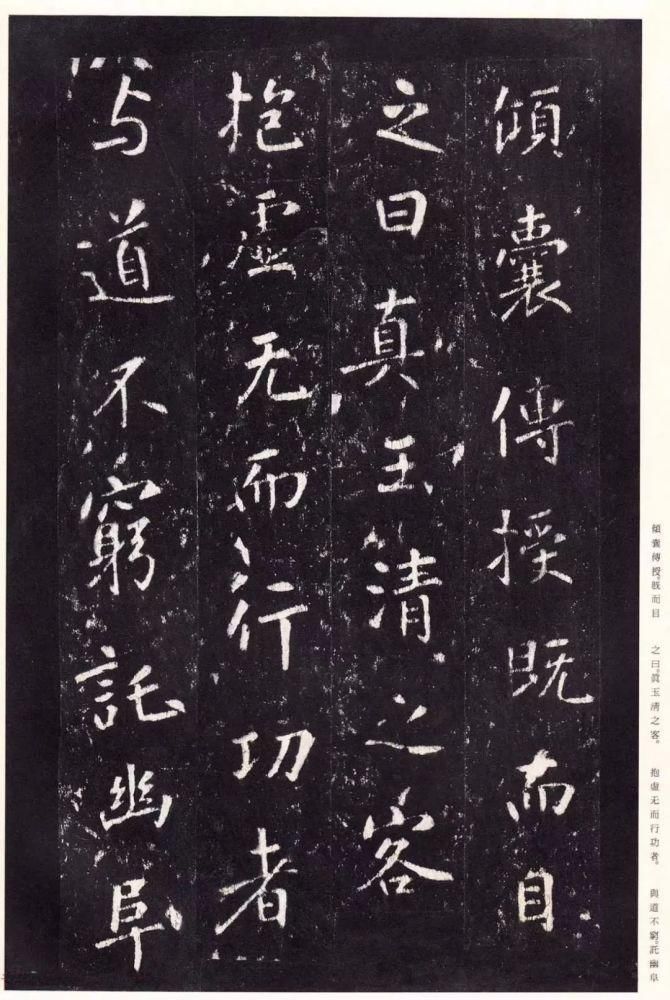 傾囊傳授既而目
之曰真玉清之客
抱虛无而行功者
与道不窮託幽阜
傾囊傳授。既而目　之曰。眞玉清之客。　抱虛无而行功者。　與道不窮。託幽阜